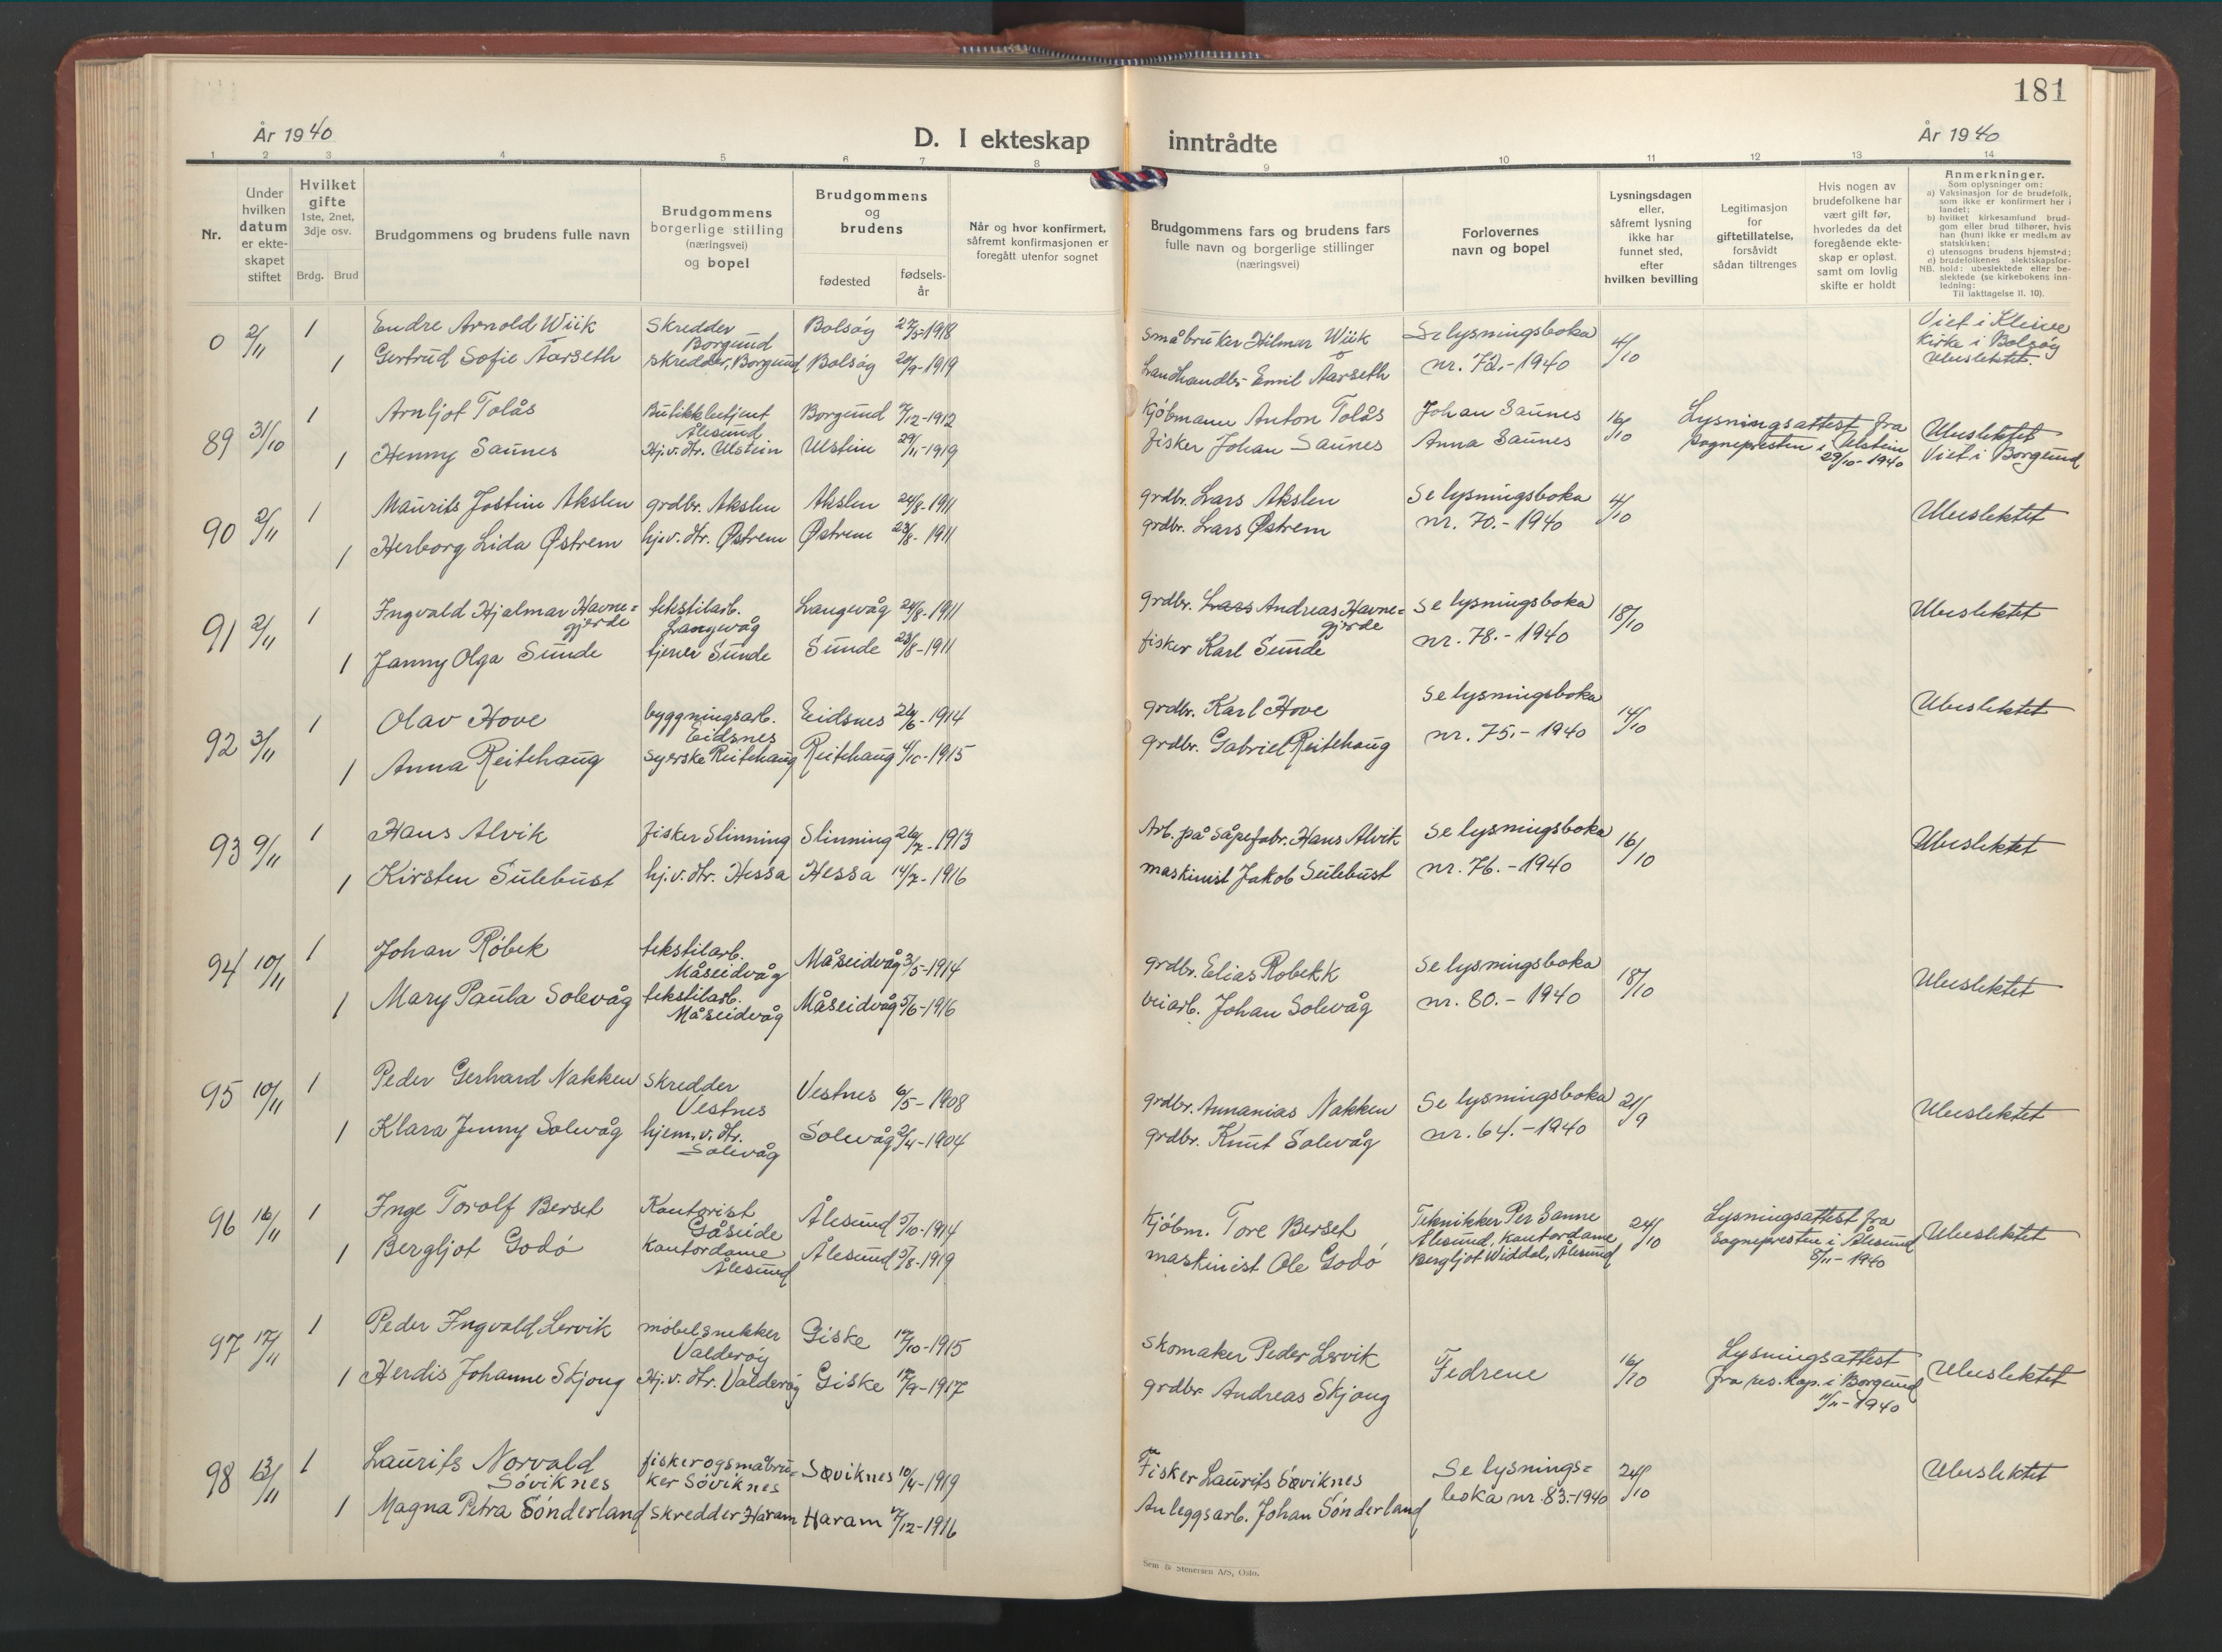 181
År 1940
D. I ekteskap inntrådte
År 1940
1 2 3 4 5 6 7 8 9 10 11 12 13 14
Nr.
Under hvilken datum er ekte-skapet stiftet
Hvilket gifte 1ste, 2net, 3dje osv.
Brdg. Brud
Brudgommens og brudens fulle navn
Brudgommens borgerlige stilling (næringsvei) og bopel
Brudgommens og brudens
fødested
fødsels-år
Når og hvor konfirmert, såfremt konfirmasjonen er foregått utenfor sognet
Brudgommens fars og brudens fars fulle navn og borgerlige stillinger (næringsvei)
Forlovernes navn og bopel
Lysningsdagen eller, såfremt lysning ikke har funnet sted, efter hvilken bevilling
Legitimasjon for giftetillatelse, forsåvidt sådan tiltrenges
Hvis nogen av brudefolkene har vært gift før, hvorledes da det foregående ekte-skap er opløst, samt om lovlig skifte er holdt
Anmerkninger.
Som oplysninger om:
a) Vaksinasjon for de brudefolk, som ikke er konfirmert her i landet;
b) hvilket kirkesamfund brud-gom eller brud tilhører, hvis han (hun) ikke er medlem av statskirken;
c) utensogns brudens hjemsted;
d) brudefolkenes slektskapsfor-hold: ubeslektede eller be-slektede (se kirkebokens inn-ledning:
NB. Til iakttagelse II. 10).
0 2/11 1 Endre Arnold Wiik Skredder Borgund Bolsøy 1918 Småbruker Hilmar Wiik Se lysningsboka 4/10 Viet i Kleive
1 Gertrud Sofie Aarseth skredder, Borgund Bolsøy 1919 Landhandler Emil Aarseth nr. 72.-1940 Kirke i Bolsøy Ubeslektet.
89 31/10 1 Arnljot Tolås Butikkbetjent Ålesund Borgund 1912 Kjøbmann Anton Tolås Johan Saunes 16/10 Lysningsattest fra Ubeslektet
1 Henny Saunes Hj.v. dtr. Ulstein Ulstein 29/11-1919 fisker Johan Saunes Anna Saunes sognepresten i Ulstein 29/10-1940 Viet i Borgund
90 2/11 1 Maurits Jostein Akslen grdbr. Akslen Akslen 24/8-1911 grdbr. Lars Akslen Se lysningsboka 4/10 Ubeslektet
1 Herborg Lida Østrem hj.v. dtr. Østrem Østrem 23/8-1911 grdbr. Lars Østrem nr. 70.-1940
91 2/11 1 Ingvald Hjalmar Havne=gjerde tekstilarb. Langevåg Langevåg 24/8-1911 grdbr. Lars Andreas Havne=gjerde Se lysningsboka 18/10 Ubeslektet
1 Janny Olga Sunde tjener Sunde Sunde 23/8-1911 fisker Karl Sunde nr. 78.-1940
92 3/11 1 Olav Hove byggningsarb. Eidsnes Eidsnes 26/6-1914 grdbr. Karl Hove Se lysningsboka 14/10 Ubeslektet
1 Anna Reitehaug syerske Reitehaug Reitehaug 4/10-1915 grdbr. Gabriel Reitehaug nr. 75.-1940
93 9/11 1 Hans Alvik fisker Slinning Slinning 26/7-1913 Arb. på Såpefabr. Hans Alvik Se lysningsboka 16/10 Ubeslektet
1 Kirsten Sulebust hj.v. dtr. Hessa Hessa 14/7-1916 maskinist Jakob Sulebust nr. 76.-1940
94 10/11 1 Johan Röbek tekstilarb. Måseidvåg Måseidvåg 3/5-1914 grdbr. Elias Robekk Se lysningsboka 18/10 Ubeslektet
1 Mary Paula Solevåg tekstilarb. Måseidvåg Måseidvåg 5/6-1916 veiarb. Johan Solevåg nr. 80.-1940
95 10/11 1 Peder Gerhard Nakken skredder Vestnes Vestnes 6/5-1908 grdbr. Annanias Nakken Se lysningsboka 21/9 Ubeslektet
1 Klara Jenny Solevåg hjem.v. dtr. Solevåg Solevåg 2/4-1904 grdbr. Knut Solevåg nr. 64.-1940
96 16/11 1 Inge Torolf Berset Kontorist Gåseide Ålesund 5/10-1914 Kjöbm. Tore Berset Teknikker Per Sanne 24/10 Lysningsattest fra Ubeslektet
1 Bergljot Godö Kontordame Ålesund Ålesund 5/8-1919 maskinist Ole Godö Ålesund, kontordame Bergljot Widdal, Ålesund Sognepresten i Ålesund 8/11-1940
97 17/11 1 Peder Ingvald Lervik möbelsnekker Valderöy Giske 17/10-1915 Skomaker Peder Lervik Fedrene 16/10 Lysningsattest Ubeslektet
1 Herdis Johanne Skjong Hj.v. dtr. Valderöy Giske 1917 grdbr Andreas Skjong fra res. Kap. i Borgund 11/11-1940
98 1 Laurits Norvald Söviknes fisker og småbru=ker Söviknes Søviknes 10/4-1919 Fisker Laurits Søviknes Se lysnings=boka nr. 83.-1940 24/10 Ubeslektet
1 Magna Petra Sönderland skredder Haram Haram 1916 Anleggsarb. Johan Sönderland
Sem & Stenersen A/S, Oslo.